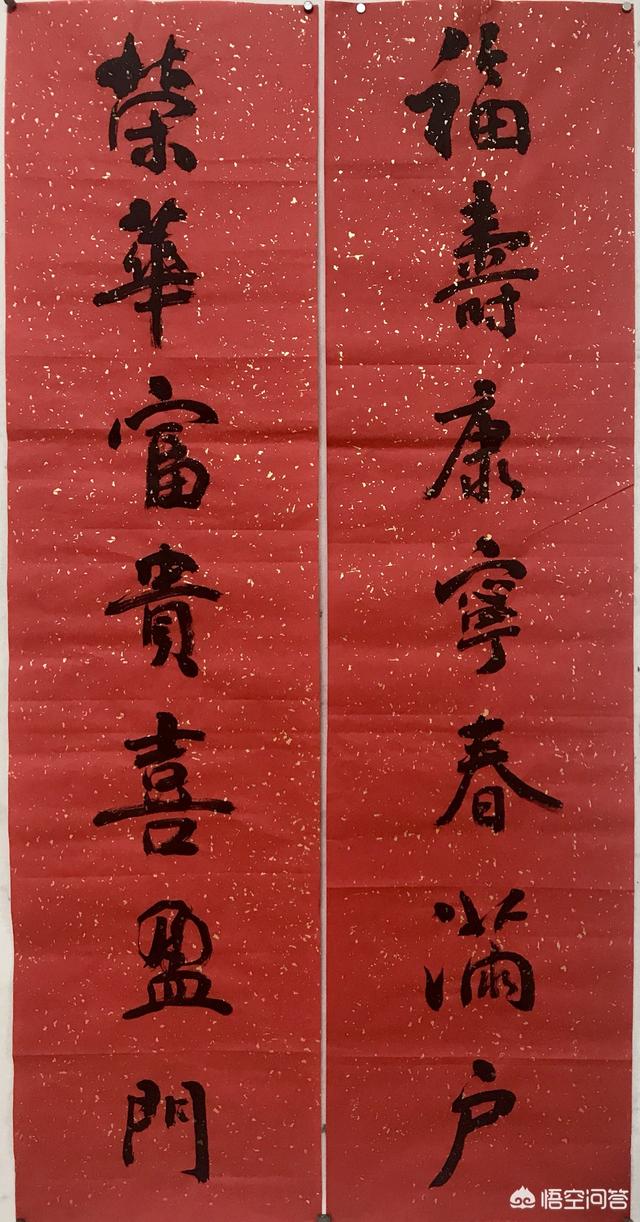 福壽康寧春滿户
荣華富貴喜盈門
悟空问答